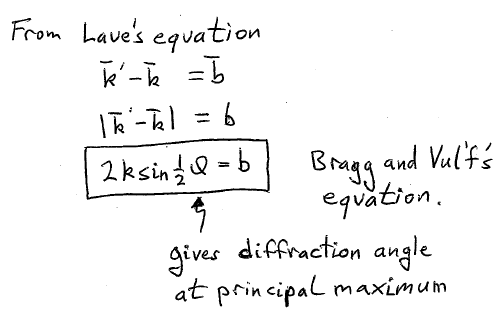 From Laue's equation
k̄′ − k̄ = b̄
|k̄′ − k̄| = b
2k sin ½ ϑ = b
Bragg and Vul'f's
equation.
gives diffraction angle
at principal maximum